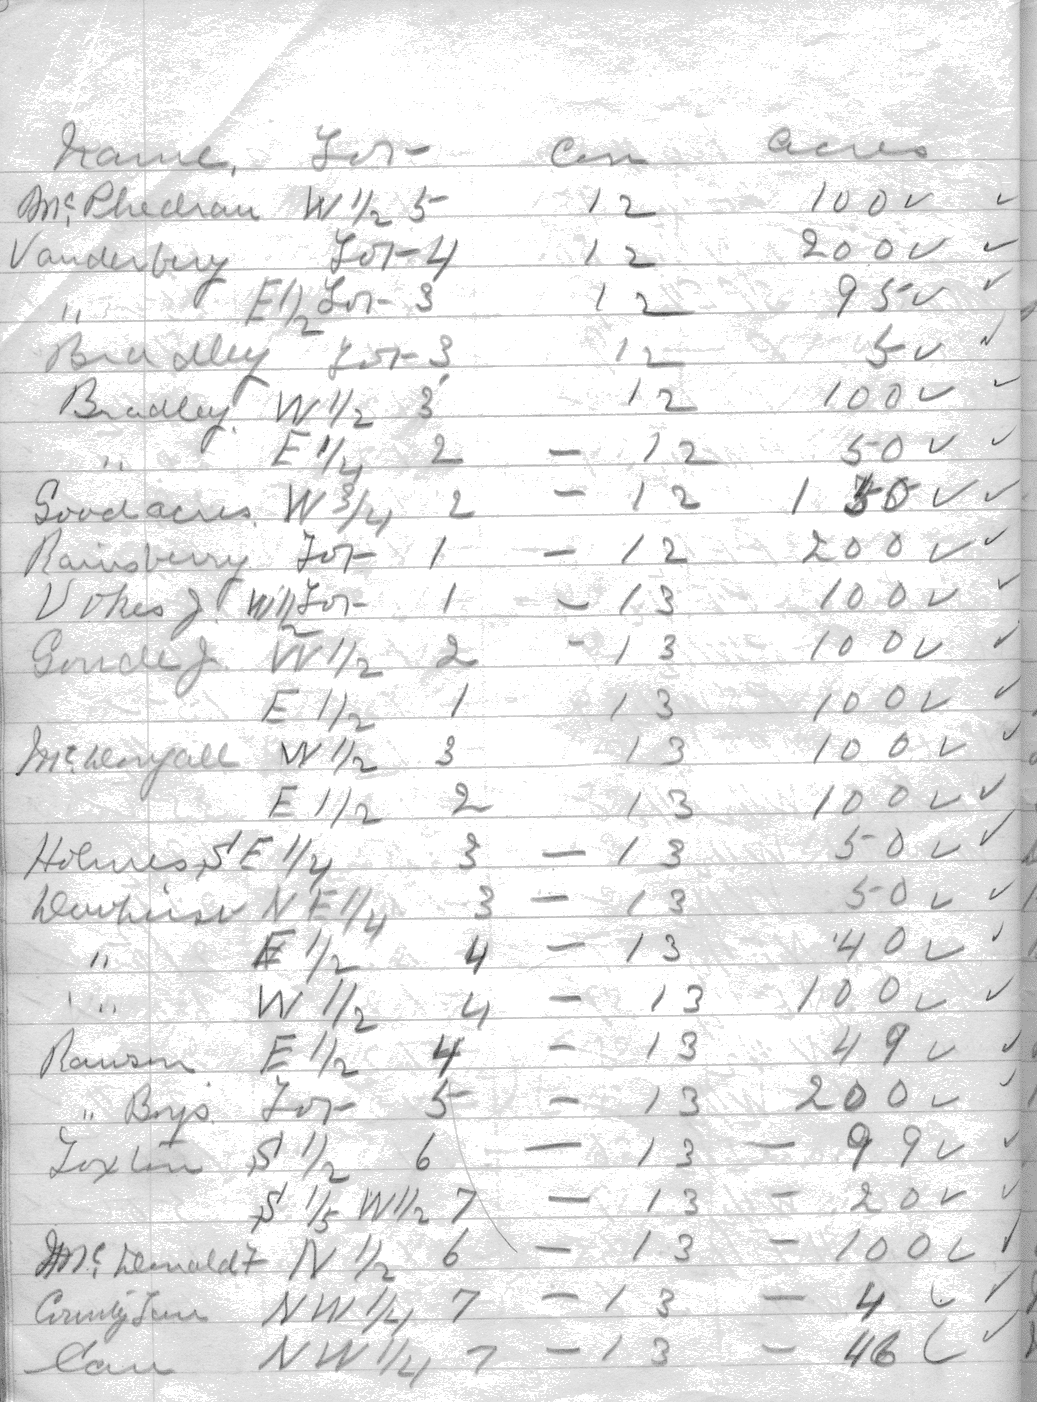 Name, Lot Con acres
Mc Phedran W 1/2 5 12 100 ✓ ✓
Vanderbury Lot 4 12 200 ✓ ✓
" E 1/2 Lot 3 12 95 ✓ ✓
Bradley Lot 3 12 5 ✓ ✓
Bradley W 1/2 3 12 100 ✓ ✓
" E 1/4 2 - 12 50 ✓ ✓
Goodacres W 3/4 2 - 12 1 50 ✓ ✓
Rainsberry Lot 1 - 12 200 ✓ ✓
Vokes J. W 1/2 Lot 1 - 13 100 ✓ ✓
J. W 1/2 2 - 13 100 ✓ ✓
E 1/2 1 13 100 ✓ ✓
W 1/2 3 13 100 ✓ ✓
E 1/2 2 13 100 ✓ ✓
Holmes, S E 1/4 3 - 13 50 ✓ ✓
N E 1/4 3 - 13 50 ✓ ✓
" E 1/2 4 - 13 40 ✓ ✓
" W 1/2 4 - 13 100 ✓ ✓
E 1/2 4 - 13 49 ✓ ✓
" Boys Lot 5 - 13 200 ✓ ✓
Loxton S 1/2 6 - 13 - 99 ✓ ✓
S 1/5 W 1/2 7 - 13 - 20 ✓ ✓
Mc Donald N 1/2 6 - 13 - 100 ✓ ✓
County N W 1/4 7 - 13 - 4 ✓ ✓
N W 1/4 7 - 13 - 46 ✓ ✓